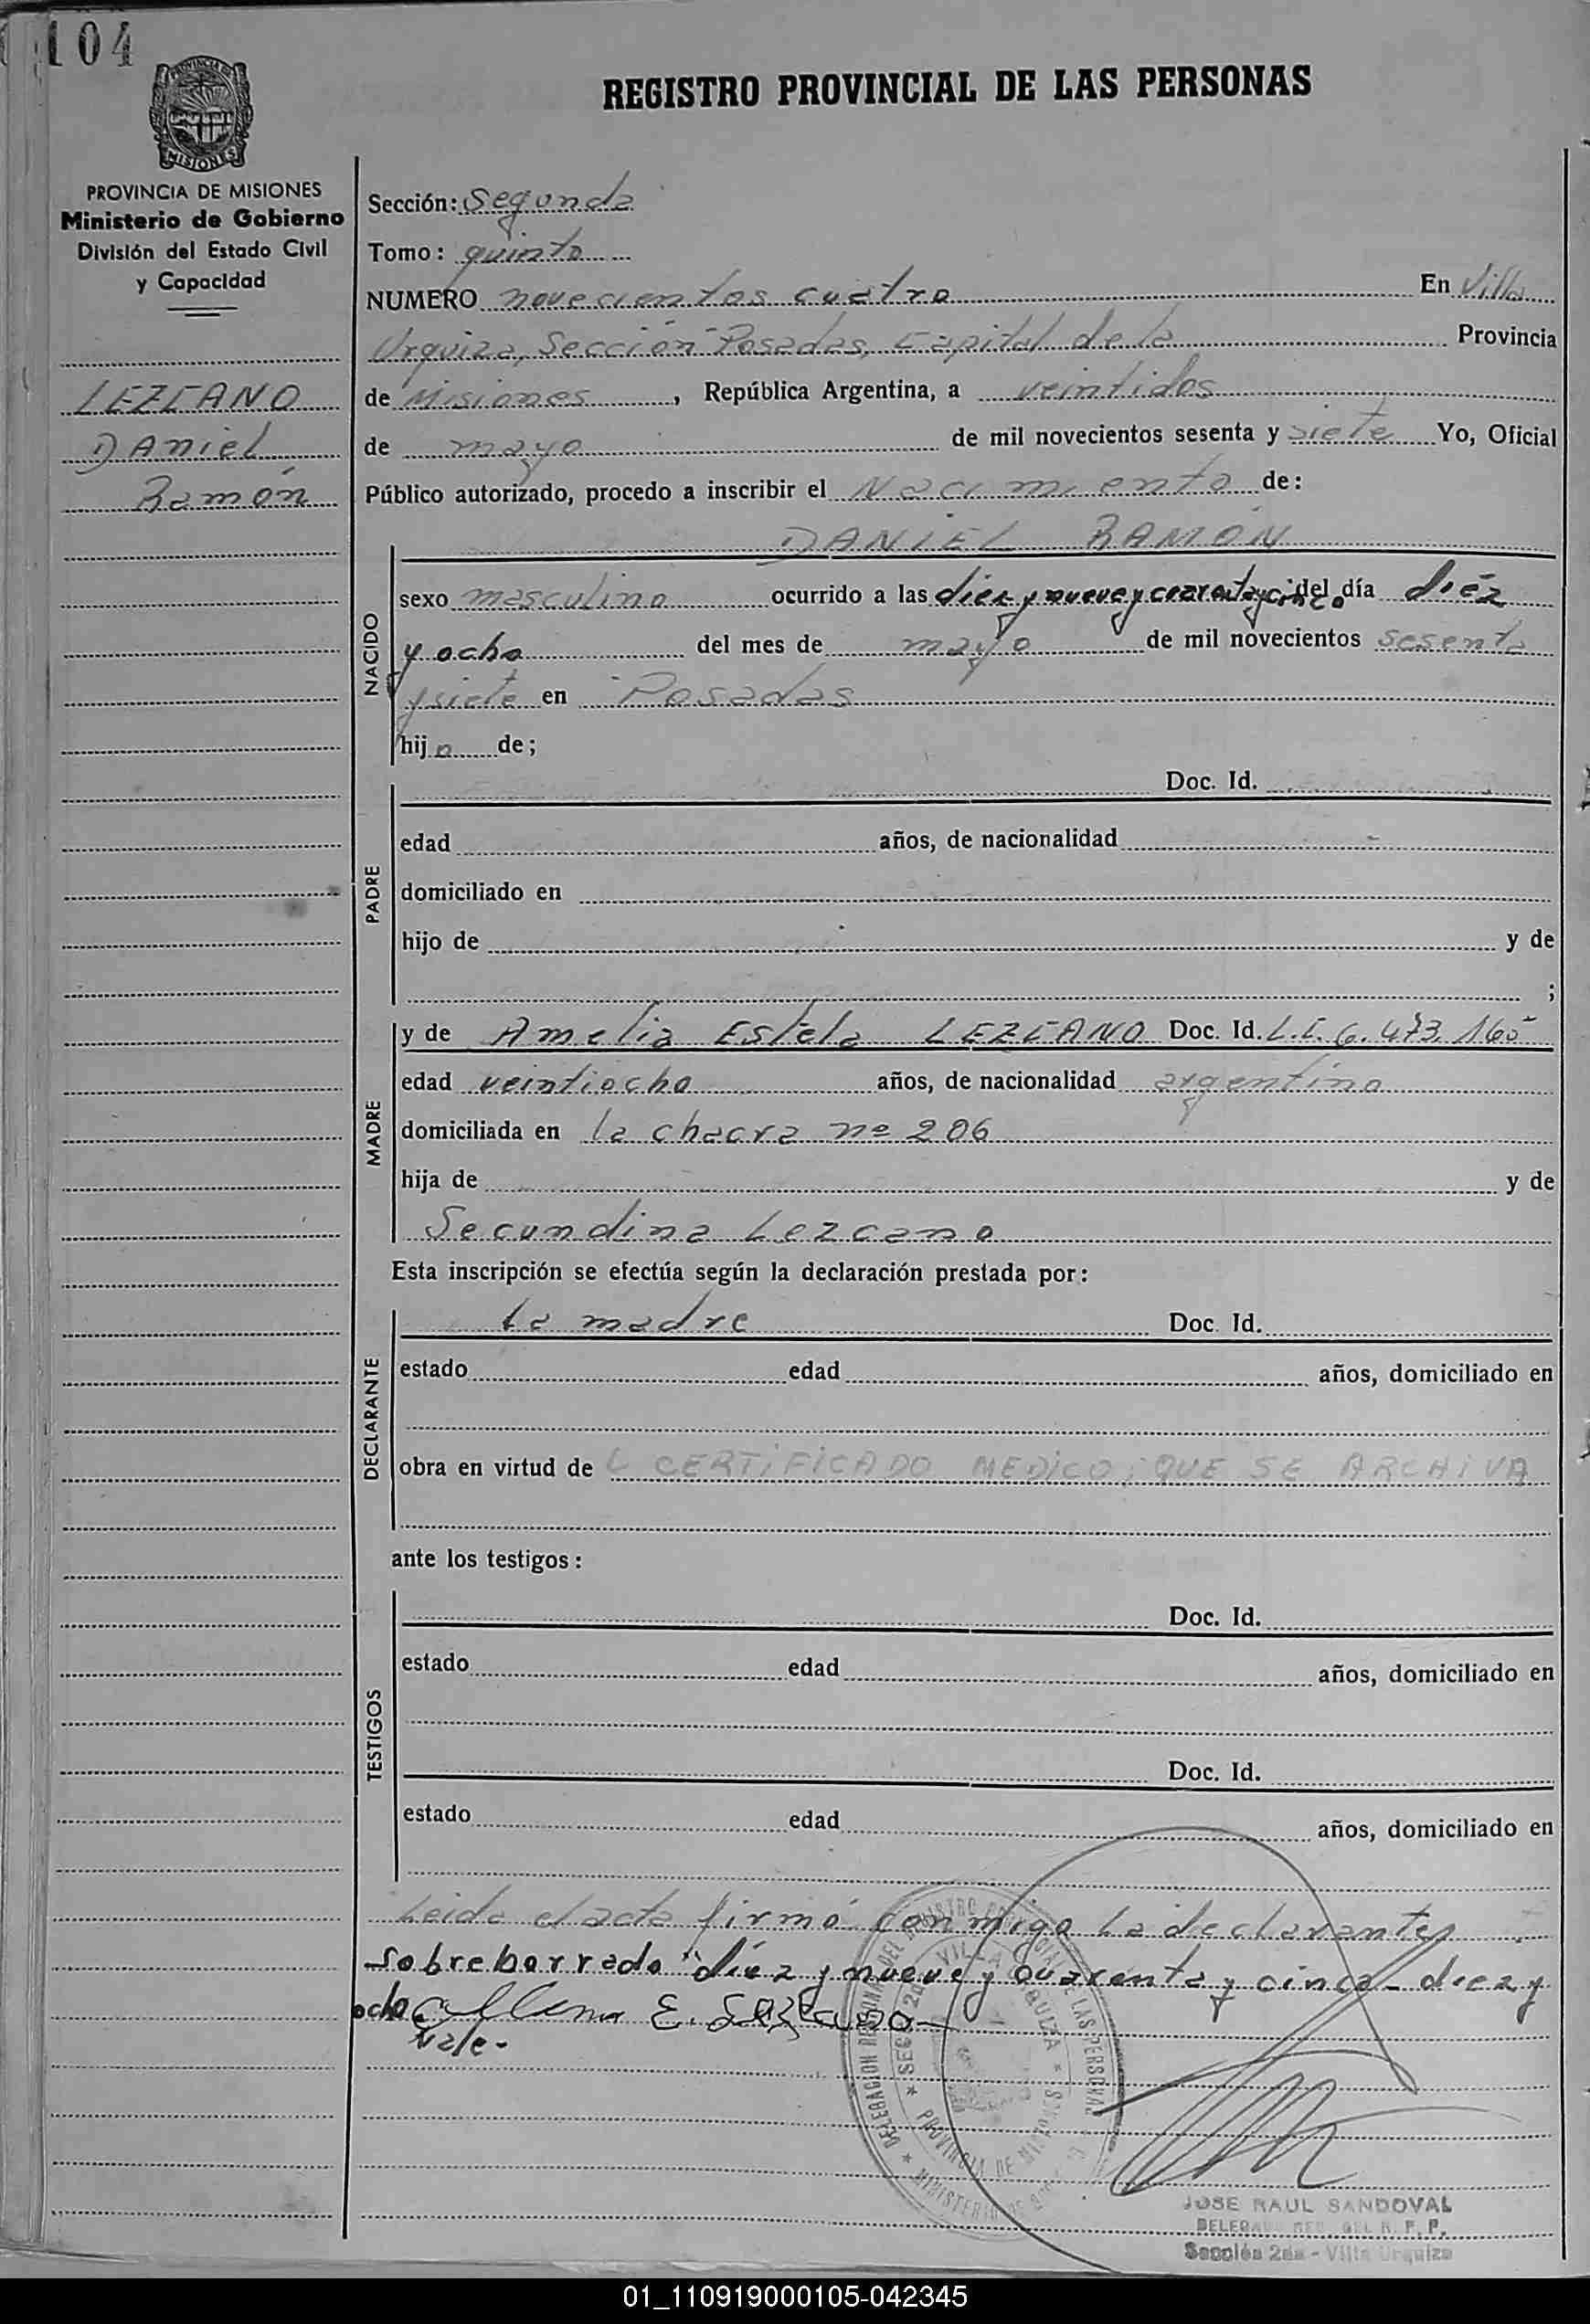 104
PROVINCIA DE MISIONES
REGISTRO PROVINCIAL DE LAS PERSONAS
PROVINCIA DE MISIONES
Ministerio de Gobierno
División del Estado Civil
y Capacidad
LEZCANO
DANIEL
Ramón
Sección: Segunda
Tomo: quinto
NUMERO novecientos cuatro En Villa
Urquiza, Sección Posadas, Capital de la Provincia
de Misiones, República Argentina, a veintidos
de mayo de mil novecientos sesenta y siete Yo, Oficial
Público autorizado, procedo a inscribir el Nacimiento de:
DANIEL RAMÓN
NACIDO
sexo masculino ocurrido a las diez y nueve y cuarenta y cinco del día diéz
y ocho del mes de mayo de mil novecientos sesenta
y siete en Posadas
hijo de;
PADRE
Doc. Id.
edad años, de nacionalidad
domiciliado en
hijo de y de
;
MADRE
y de Amelia Estela LEZCANO Doc. Id. L.C. 6.473.160
edad veintiocho años, de nacionalidad argentina
domiciliada en la chacra nº 206
hija de y de
Secundina Lezcano
Esta inscripción se efectúa según la declaración prestada por:
DECLARANTE
La madre Doc. Id.
estado edad años, domiciliado en
obra en virtud de L CERTIFICADO MEDICO, QUE SE ARCHIVA
ante los testigos:
TESTIGOS
Doc. Id.
estado edad años, domiciliado en
Doc. Id.
estado edad años, domiciliado en
Leida el acta firmó conmigo la declarante
sobreborrado "diez y nueve y cuarenta y cinco - diez y
ocho
vale.-
E. Lezcano
DELEGACION DEL REGISTRO PROVINCIAL DE LAS PERSONAS
SEC. 2da VILLA URQUIZA
PROVINCIA DE MISIONES
MINISTERIO DE
JOSE RAUL SANDOVAL
DELEGADO DEL R. P. P.
Sección 2da - Villa Urquiza
01_110919000105-042345